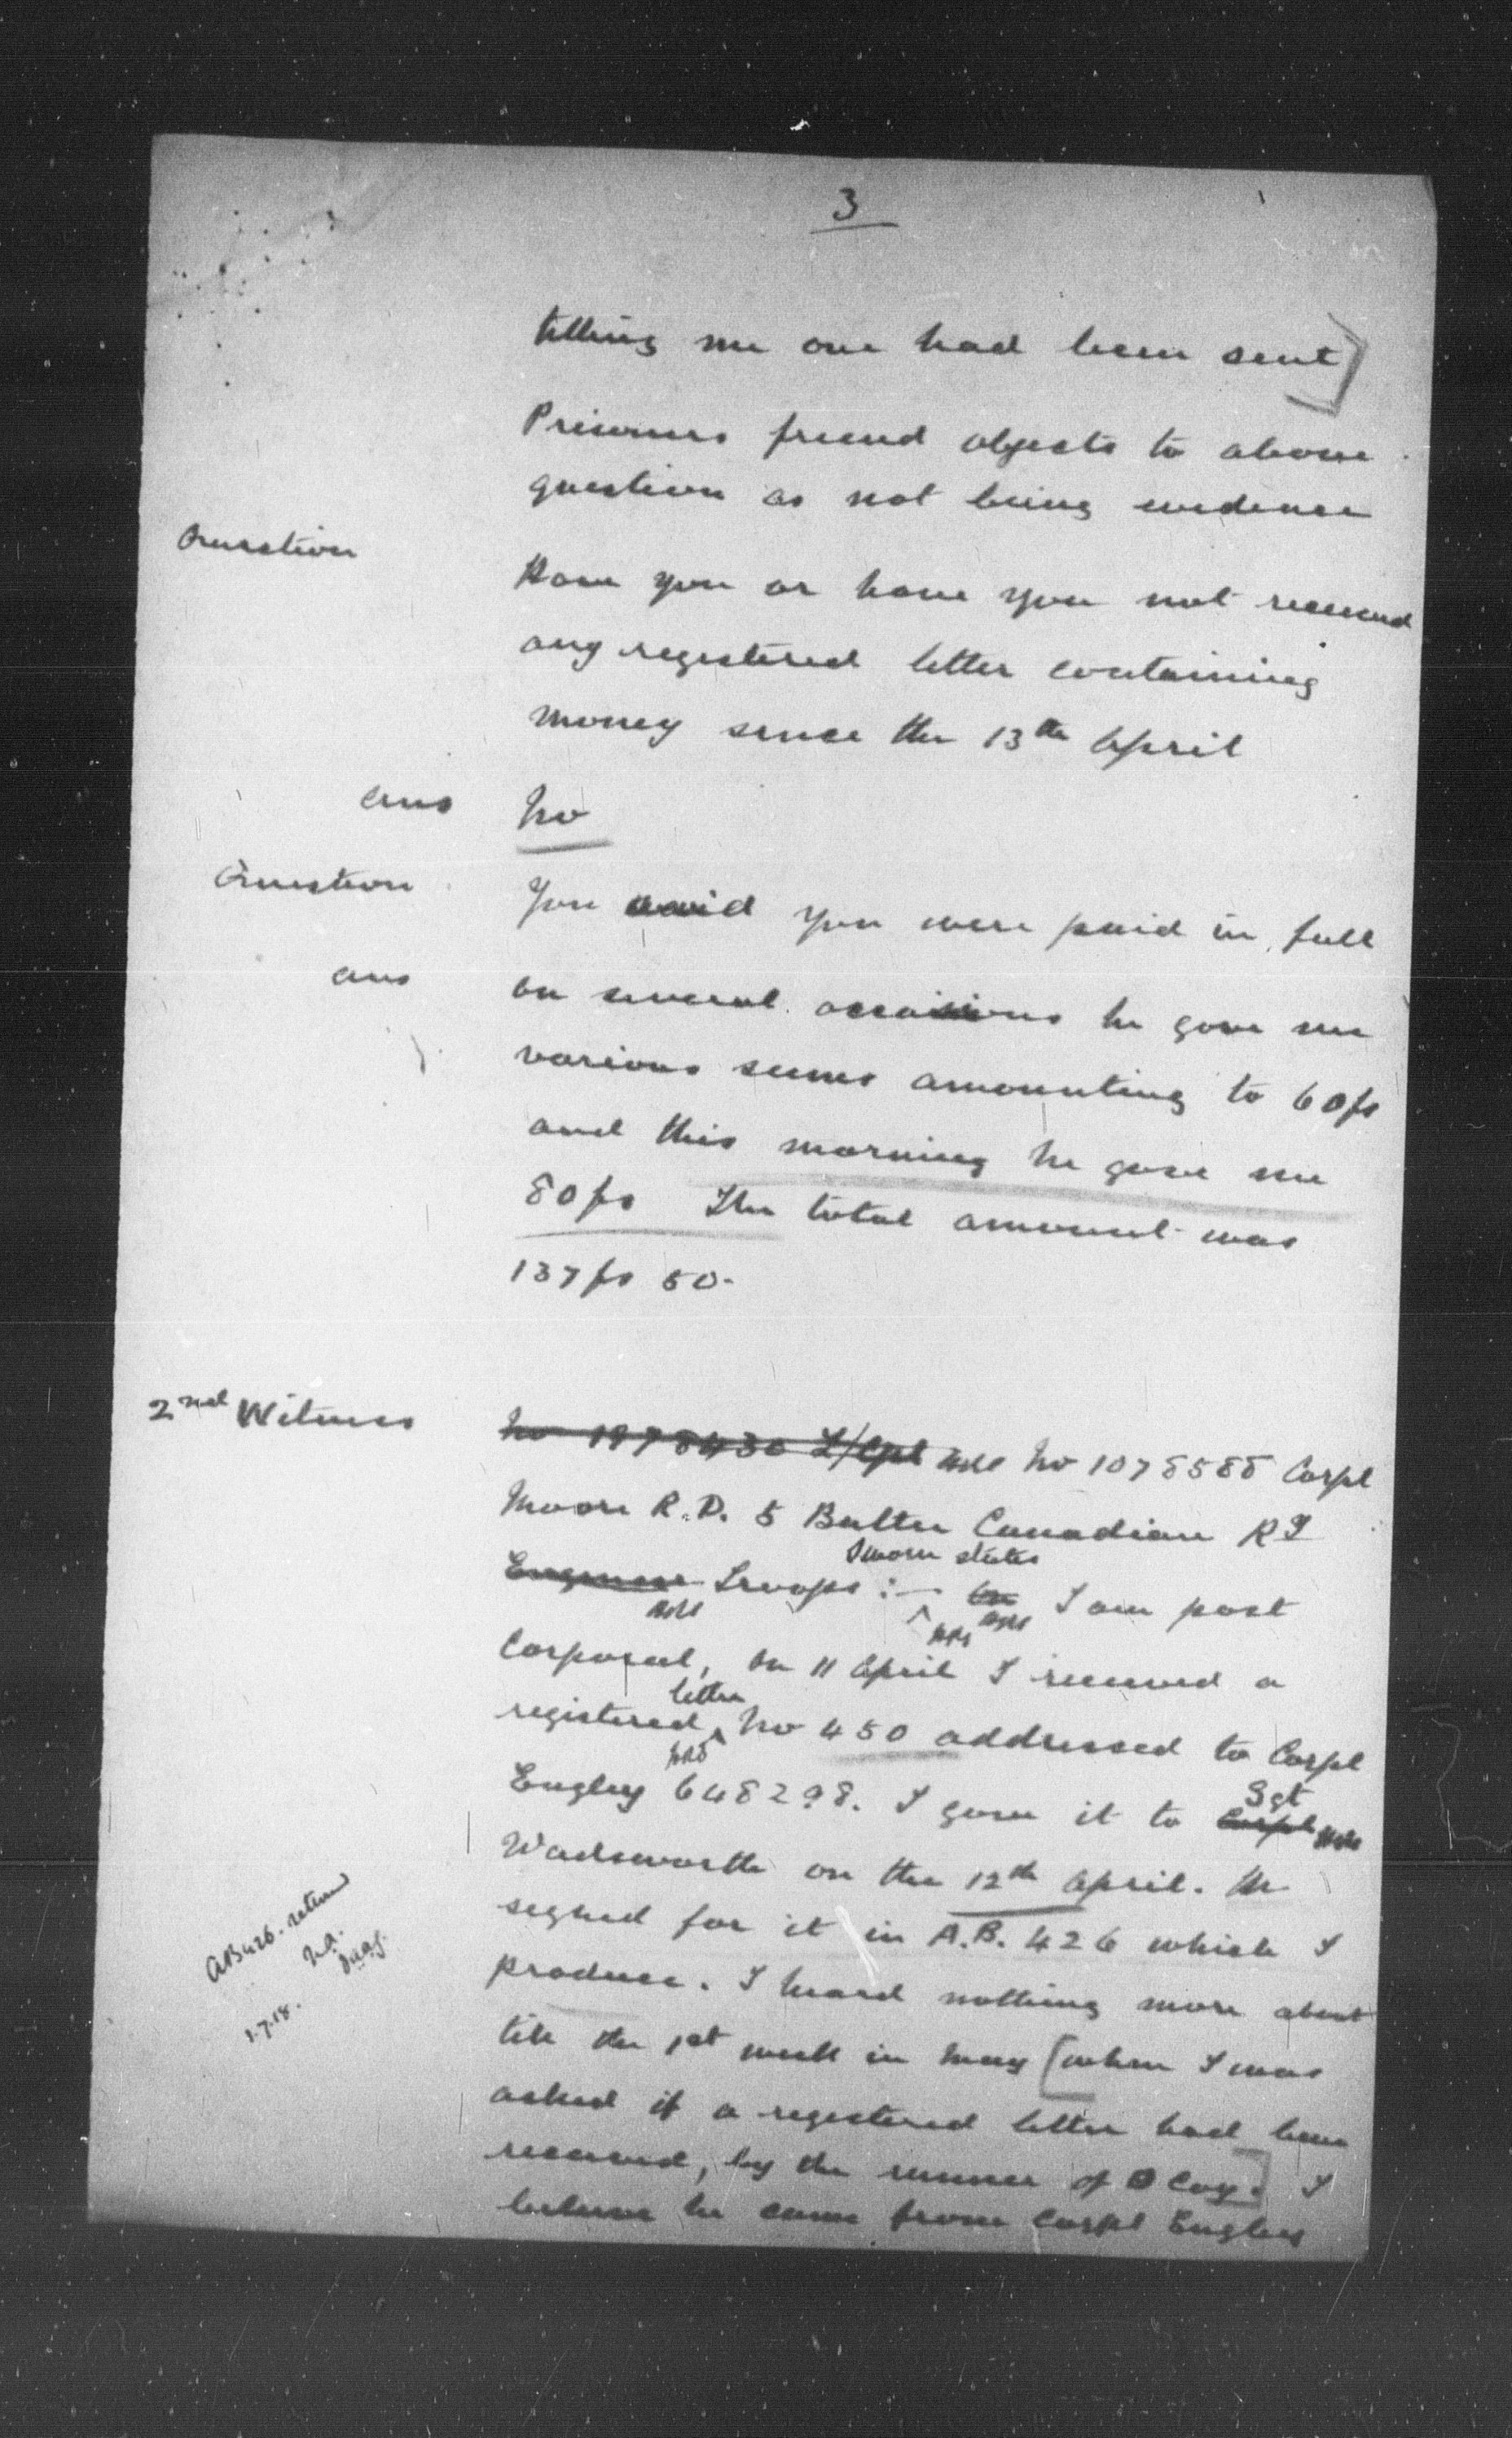 3
telling me one had been sent]
Prisoners friend objects to above
question as not being evidence
Question Have you or have you not received
any registered letter containing
money since the 13th April
ans No
Question You said you were paid in full
ans on several occasions he gave me
various sums amounting to 60 fs
and this morning he gave me
80 fs The total amount was
137 fs 50.
2nd Witness No 1078588 Corpl
Moore R.D. 5 Battn Canadian Ry
Sworn states
Engineer Troops :- On I am post
Corporal, on 11 April I received a
letter
registered No 450 addressed to Corpl
Sgt
Engley 648298. I gave it to Corpl
Wadsworth on the 12th April. He
signed for it in A.B. 426 which I
produce. I heard nothing more about
till the 1st week in May [when I was
asked if a registered letter had been
received, by the runner of D Coy.] I
believe he came from Corpl Engley
AB 426. returned
1.7.18.